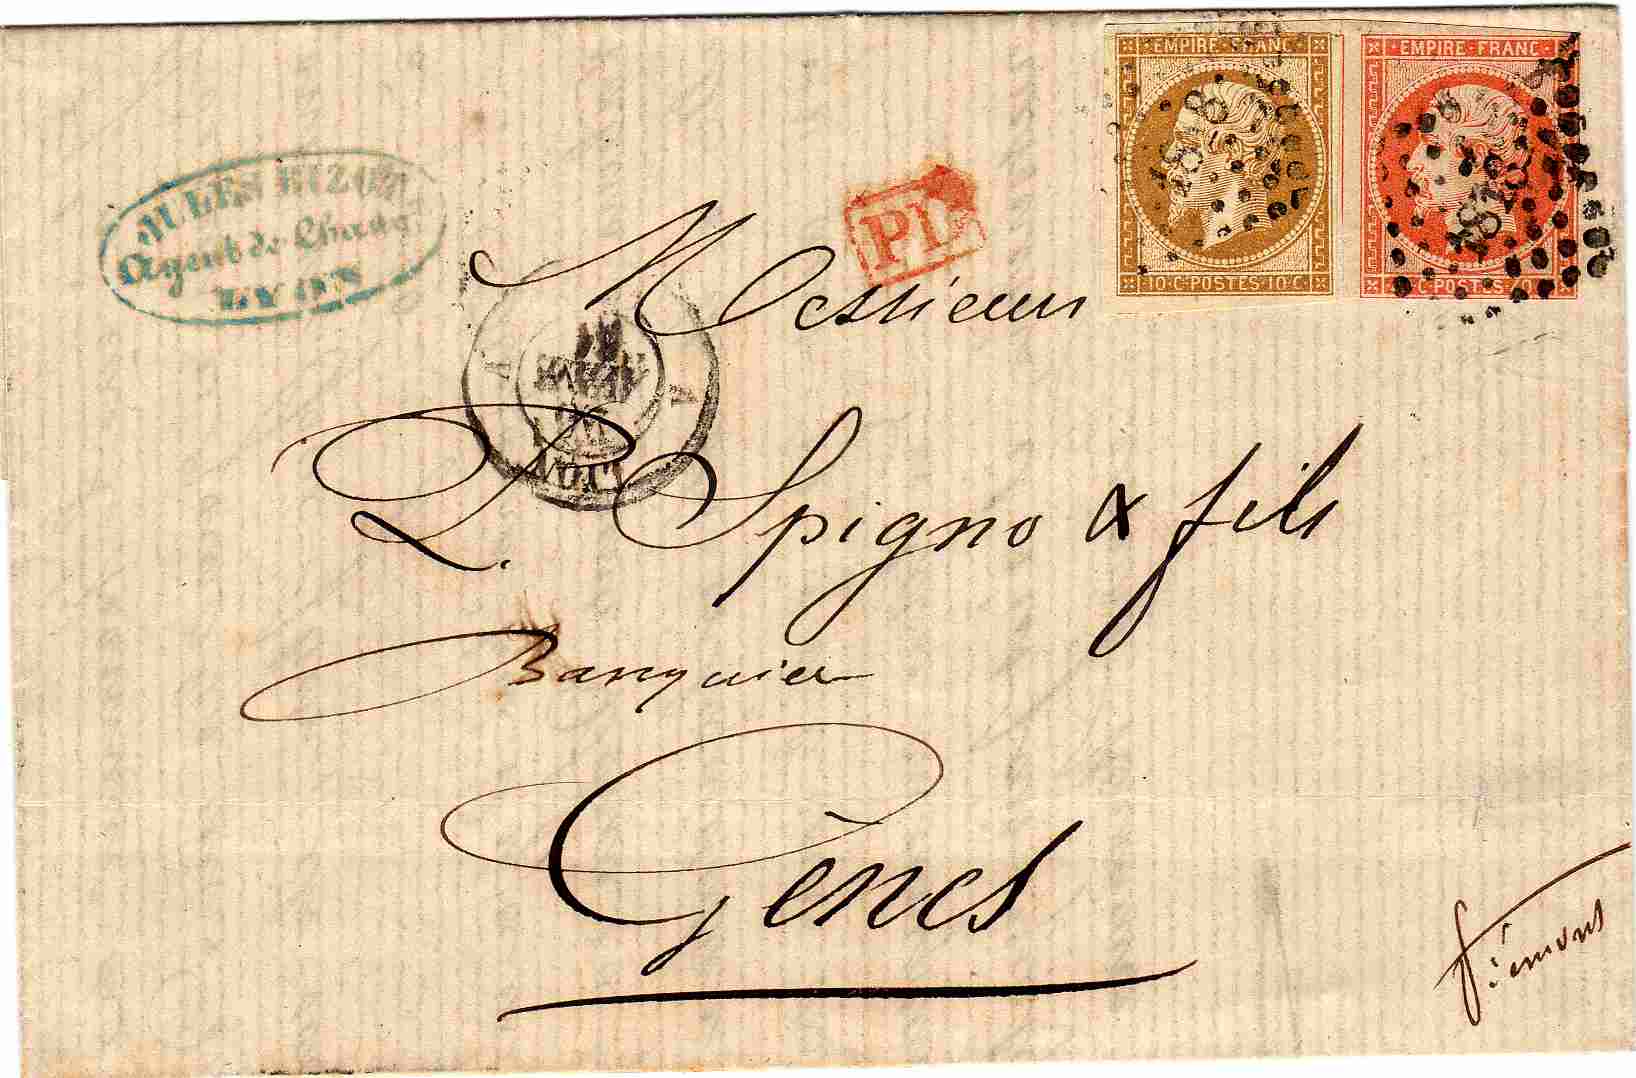 EMPIRE FRANC
10·C·POSTES·10·C
EMPIRE FRANC
C·POSTES
1818
1818
JULES
Agent de Change
LYON
PD
A A
LYON
Messieurs
L. Spigno & fils
Banquier
Gênes
Piémont